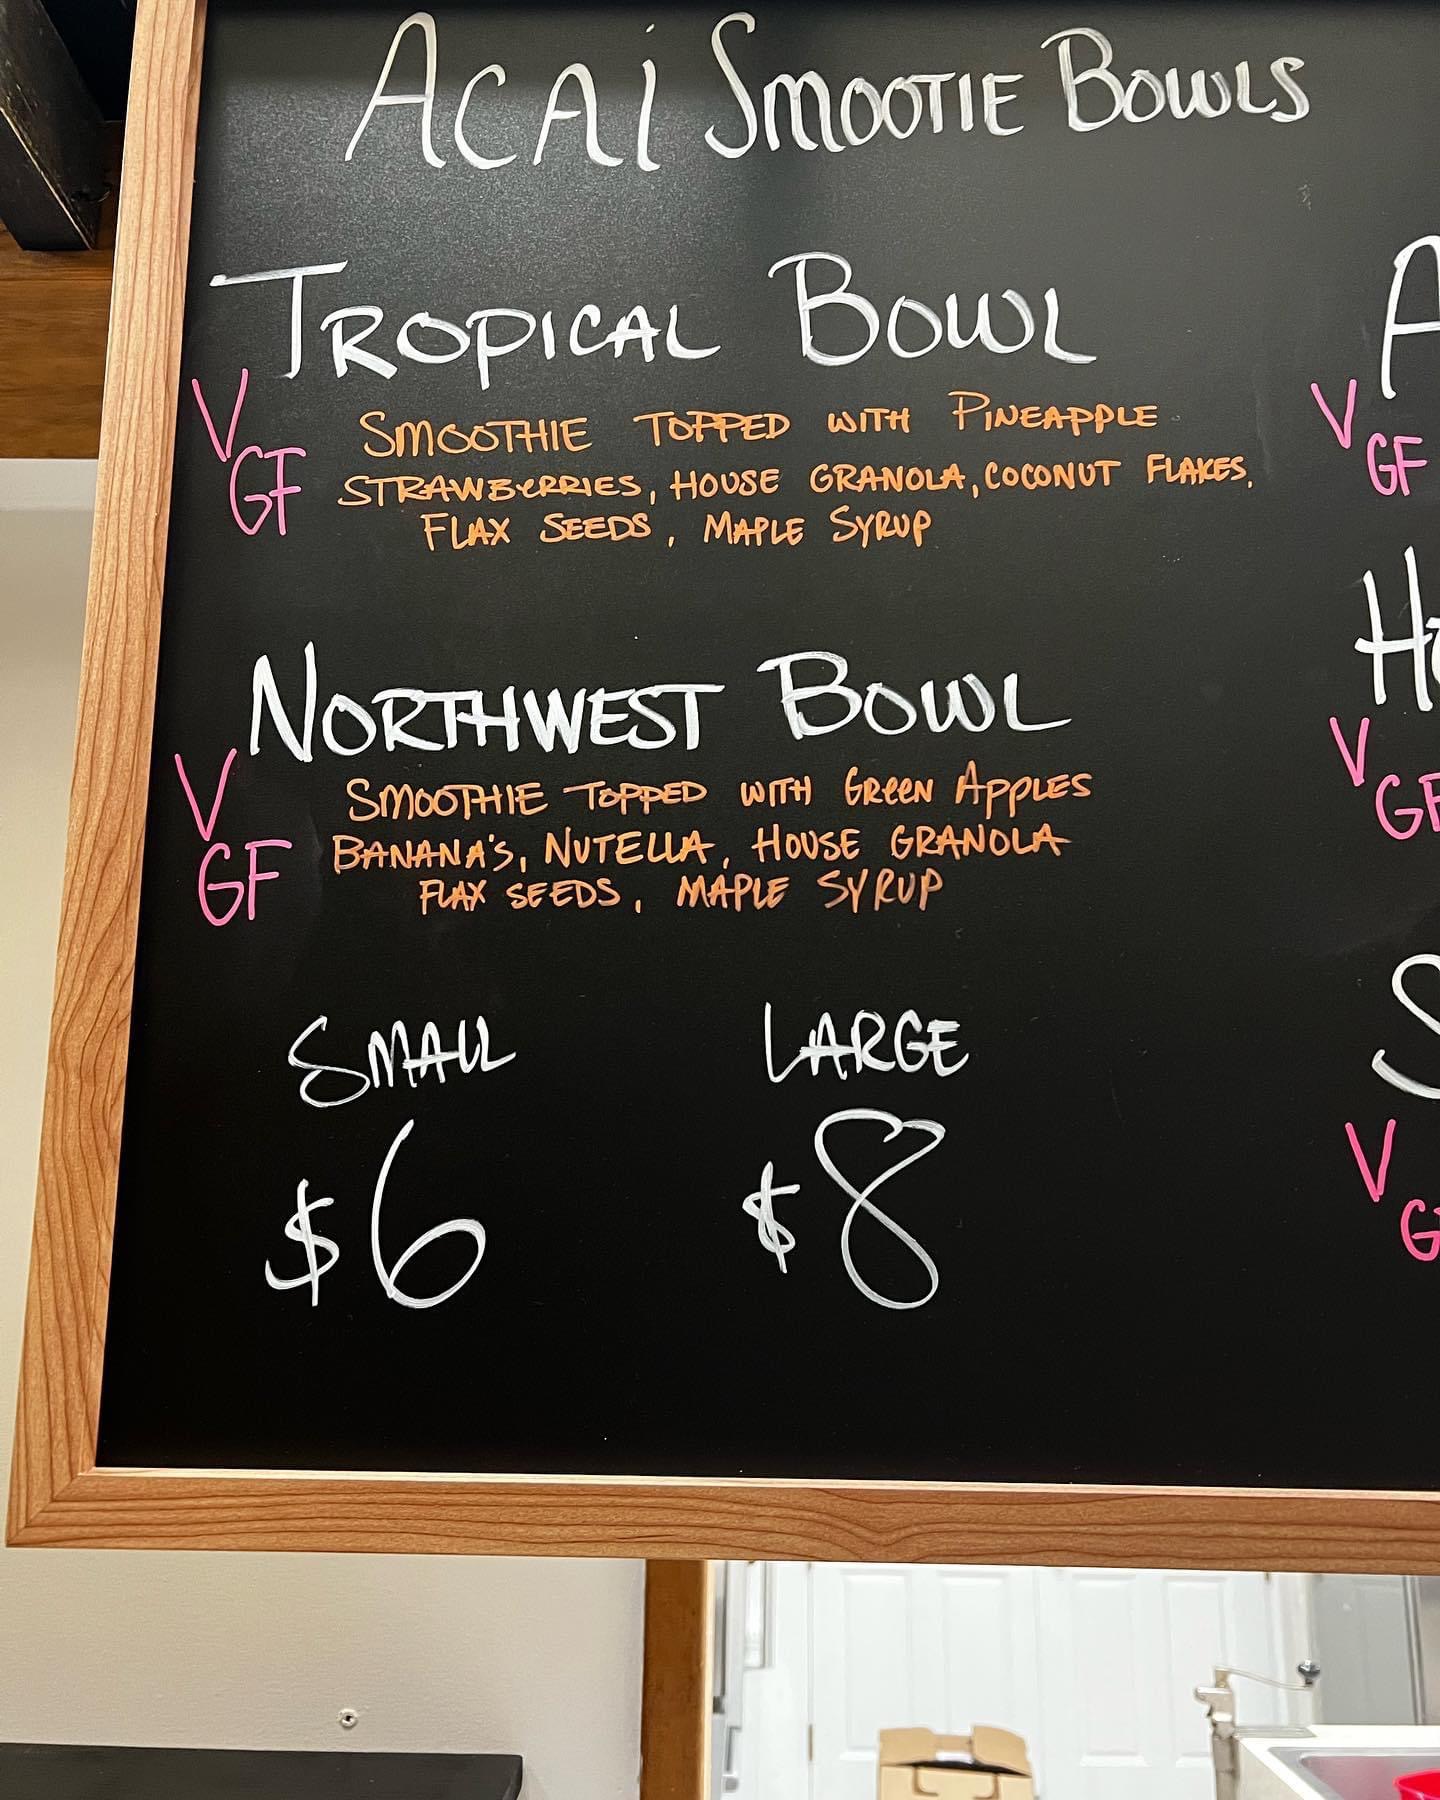 ACAi SMOOTIE BOWLS
TROPICAL BOWL
V
GF
SMOOTHIE TOPPED WITH PINEAPPLE
STRAWBERRIES, HOUSE GRANOLA, COCONUT FLAKES,
FLAX SEEDS, MAPLE SYRUP
NORTHWEST BOWL
V
GF
SMOOTHIE TOPPED WITH GREEN APPLES
BANANA'S, NUTELLA, HOUSE GRANOLA
FLAX SEEDS, MAPLE SYRUP
SMALL LARGE
$6 $8
A
V
GF
V
GF
S
V